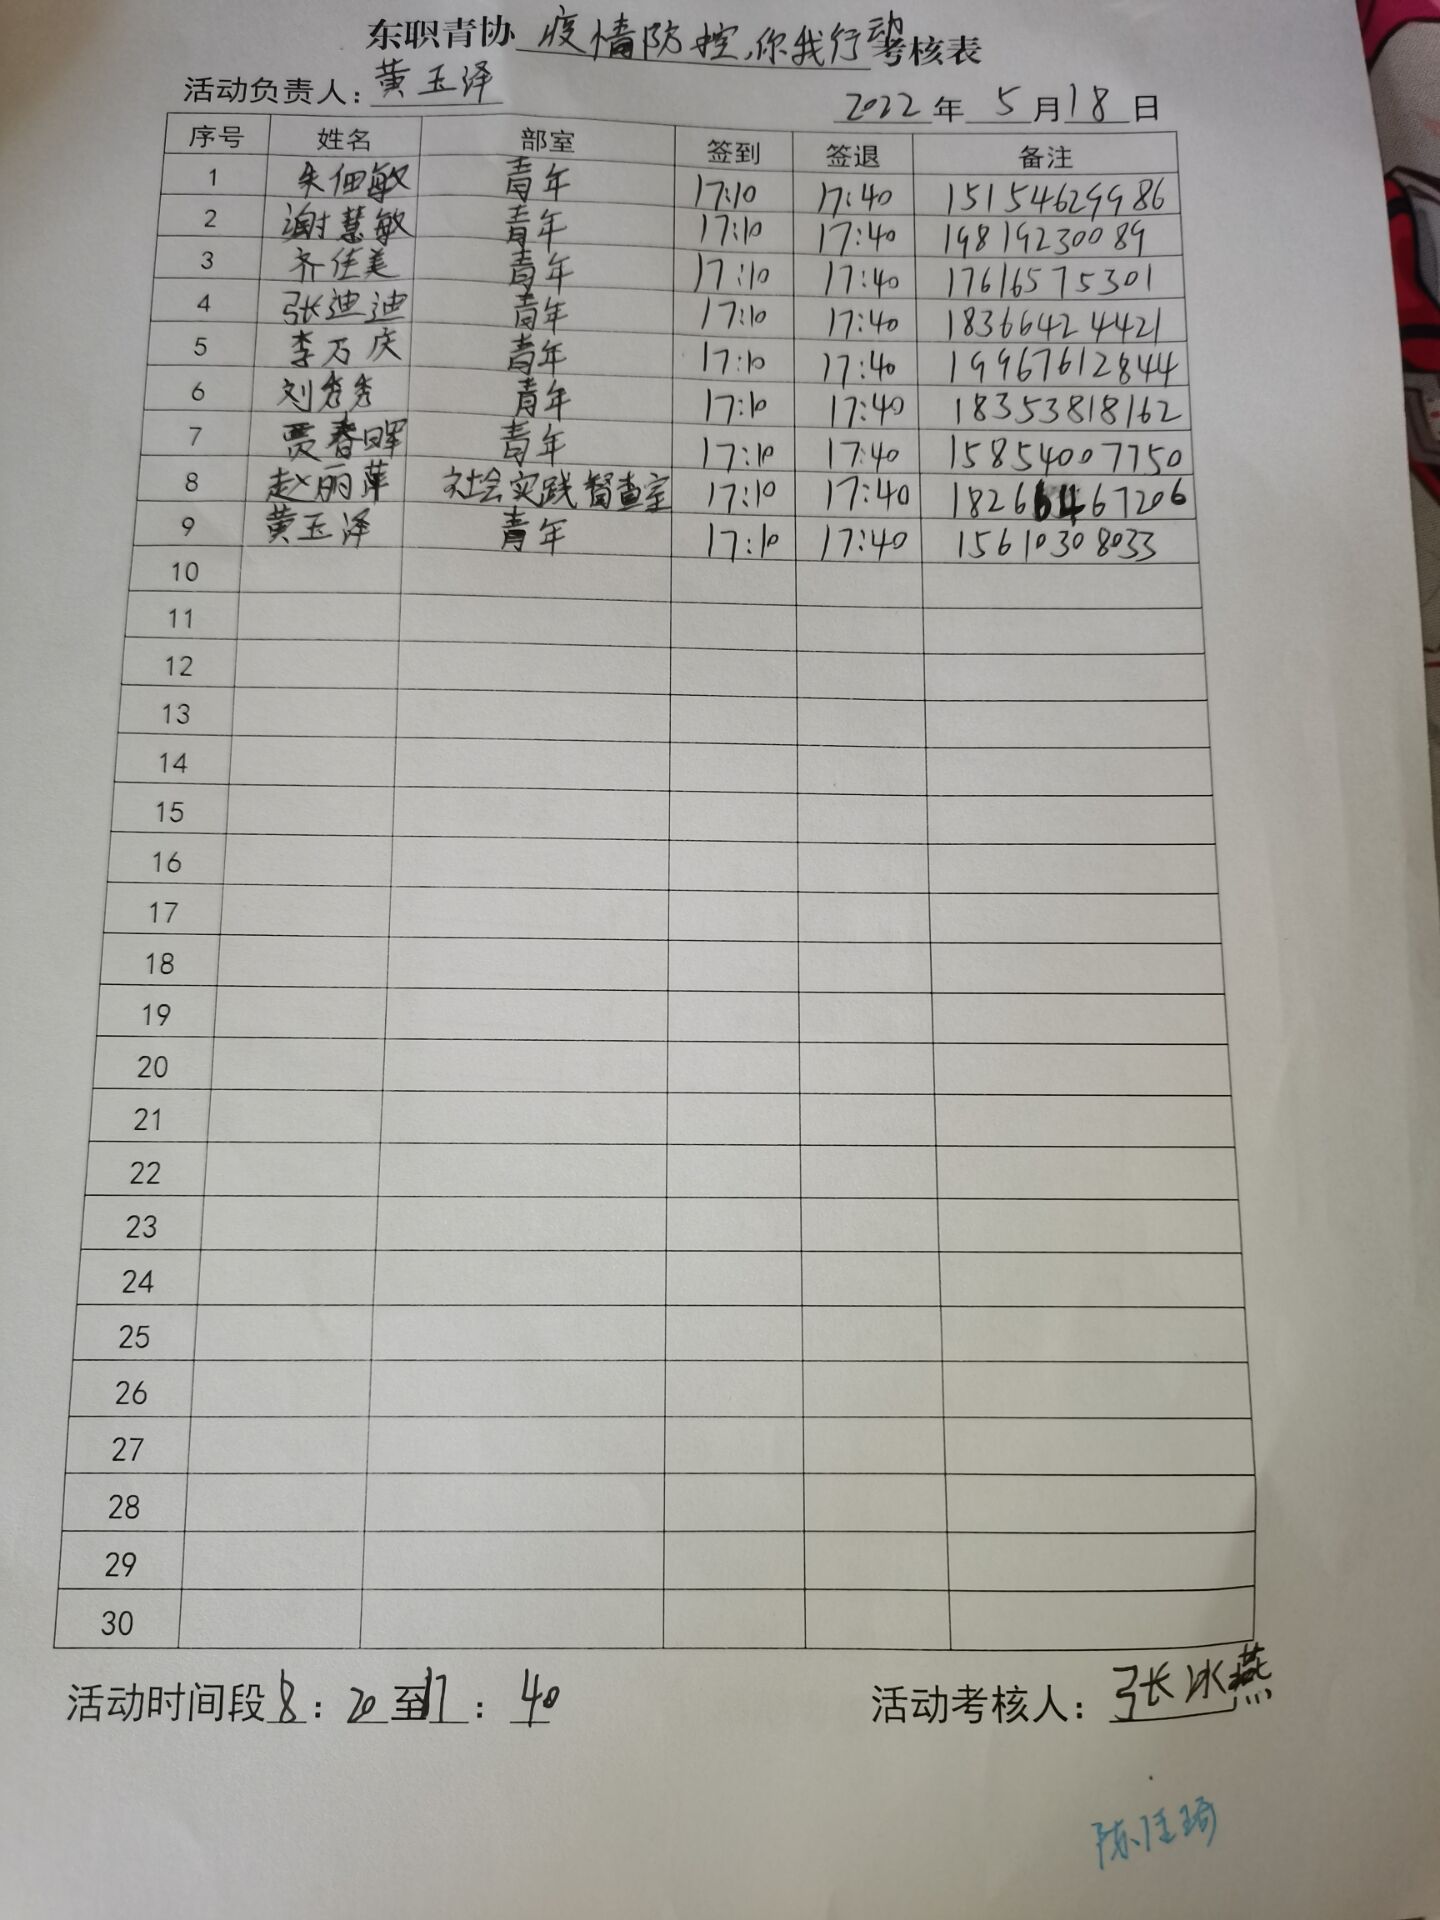 东职青协 疫情防控,你我行动 考核表
活动负责人：黄玉泽 2022 年 5 月 18 日
序号 姓名 部室 签到 签退 备注
1 朱佃敏 青年 17:10 17:40 15154629986
2 谢慧敏 青年 17:10 17:40 19819230089
3 齐佳美 青年 17:10 17:40 17616575301
4 张迪迪 青年 17:10 17:40 18366424421
5 李万庆 青年 17:10 17:40 19967612844
6 刘秀秀 青年 17:10 17:40 18353818162
7 贾春晖 青年 17:10 17:40 15854007750
8 赵丽萍 社会实践督查室 17:10 17:40 18266467206
9 黄玉泽 青年 17:10 17:40 15610308033
10
11
12
13
14
15
16
17
18
19
20
21
22
23
24
25
26
27
28
29
30
活动时间段 8：20 至 17：40 活动考核人：张冰燕
陈佳琦